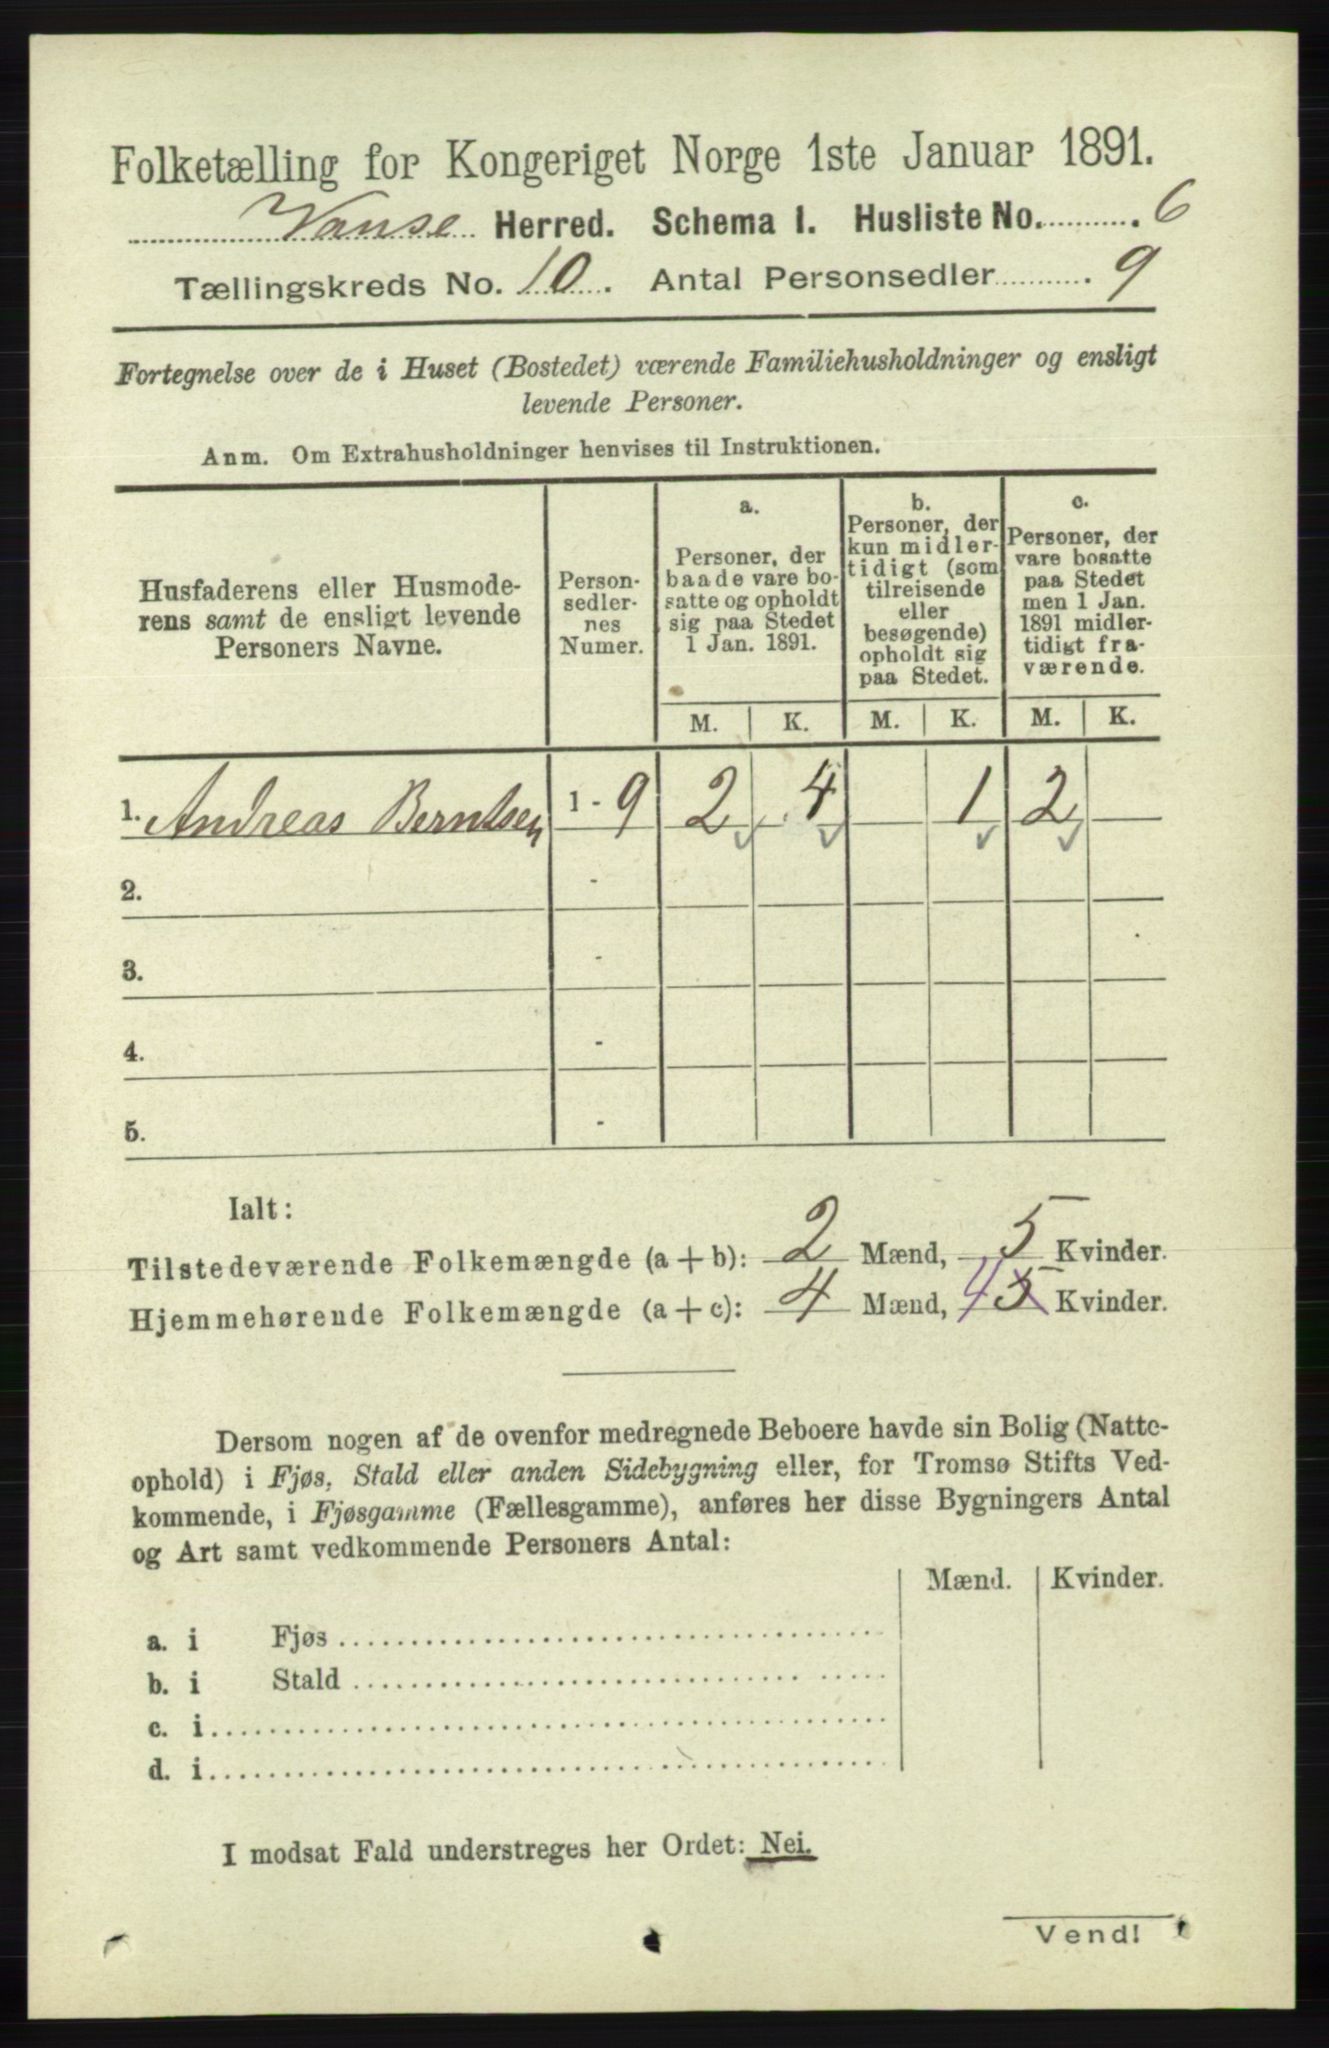 Folketælling for Kongeriget Norge 1ste Januar 1891.
Vanse Herred. Schema I. Husliste No. 6
Tællingskreds No. 10. Antal Personsedler 9
Fortegnelse over de i Huset (Bostedet) værende Familiehusholdninger og ensligt
levende Personer.
Anm. Om Extrahusholdninger henvises til Instruktionen.
Husfaderens eller Husmode-
rens samt de ensligt levende
Personers Navne.
Person-
sedler-
nes
Numer.
a.
Personer, der
baade vare bo-
satte og opholdt
sig paa Stedet
1 Jan. 1891.
b.
Personer, der
kun midler-
tidigt (som
tilreisende
eller
besøgende)
opholdt sig
paa Stedet.
c.
Personer, der
vare bosatte
paa Stedet
men 1 Jan.
1891 midler-
tidigt fra-
værende.
M. K. M. K. M. K.
1. Andreas Berntsen 1 - 9 2 4 1 2
2. -
3. -
4. -
5. -
Ialt:
Tilstedeværende Folkemængde (a + b): 2 Mænd, 5 Kvinder.
Hjemmehørende Folkemængde (a + c): 4 Mænd, 4 5 Kvinder.
Dersom nogen af de ovenfor medregnede Beboere havde sin Bolig (Natte-
ophold) i Fjøs, Stald eller anden Sidebygning eller, for Tromsø Stifts Ved-
kommende, i Fjøsgamme (Fællesgamme), anføres her disse Bygningers Antal
og Art samt vedkommende Personers Antal:
Mænd. Kvinder.
a. i Fjøs
b. i Stald
c. i
d. i
I modsat Fald understreges her Ordet: Nei.
Vend!